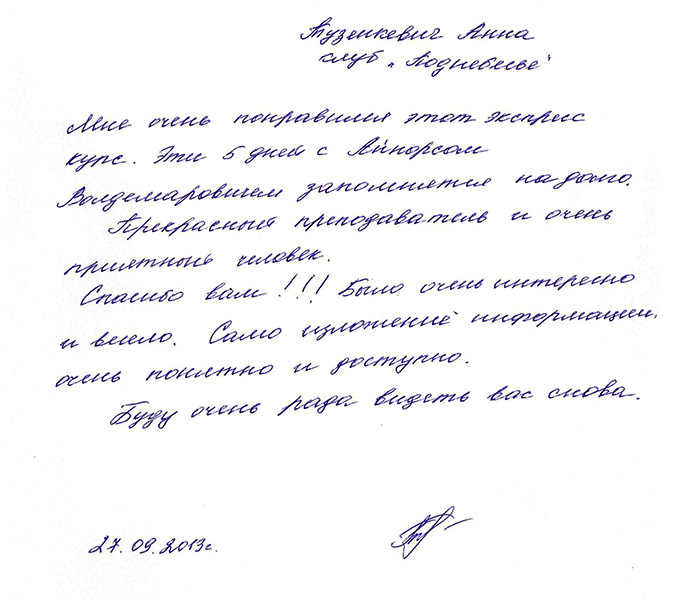 Музенкевич Анна
клуб "Поднебесье"
Мне очень понравился этот экспрес
курс. Эти 5 дней с Айнарсом
Волдемаровичем запомнятся на долго.
Прекрасный преподаватель и очень
приятный человек.
Спасибо вам!!! Было очень интересно
и весело. Само изложение информации,
очень понятно и доступно.
Буду очень рада видеть вас снова.
27.09.2013г.